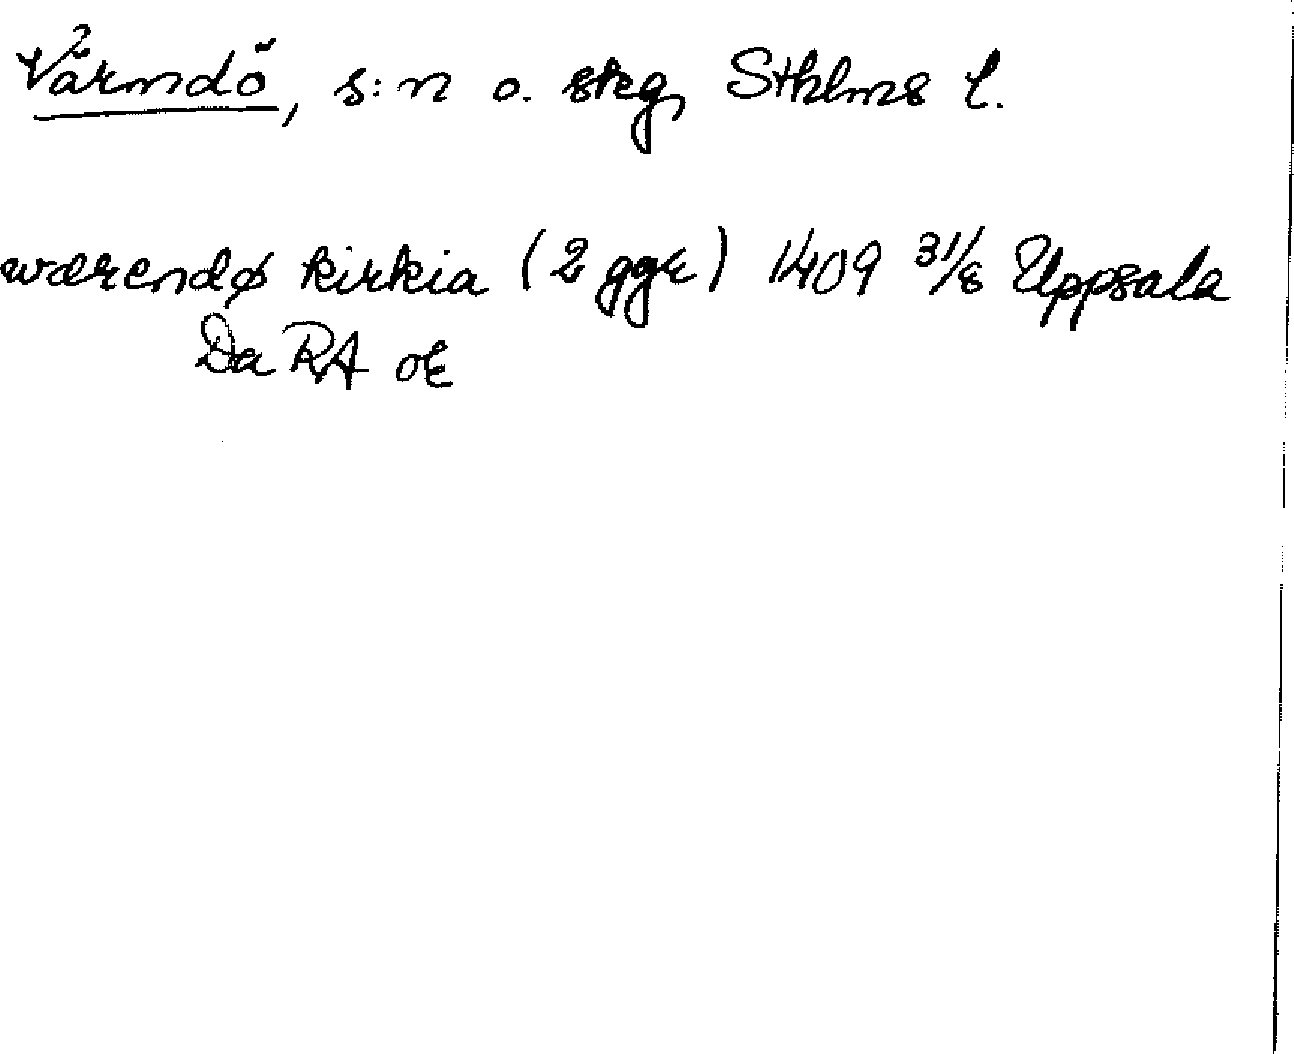 Värmdö, s:n o. skg, Sthlms l.
wærendø kirkia (2 ggr) 1409 31/8 Uppsala
Da RA or